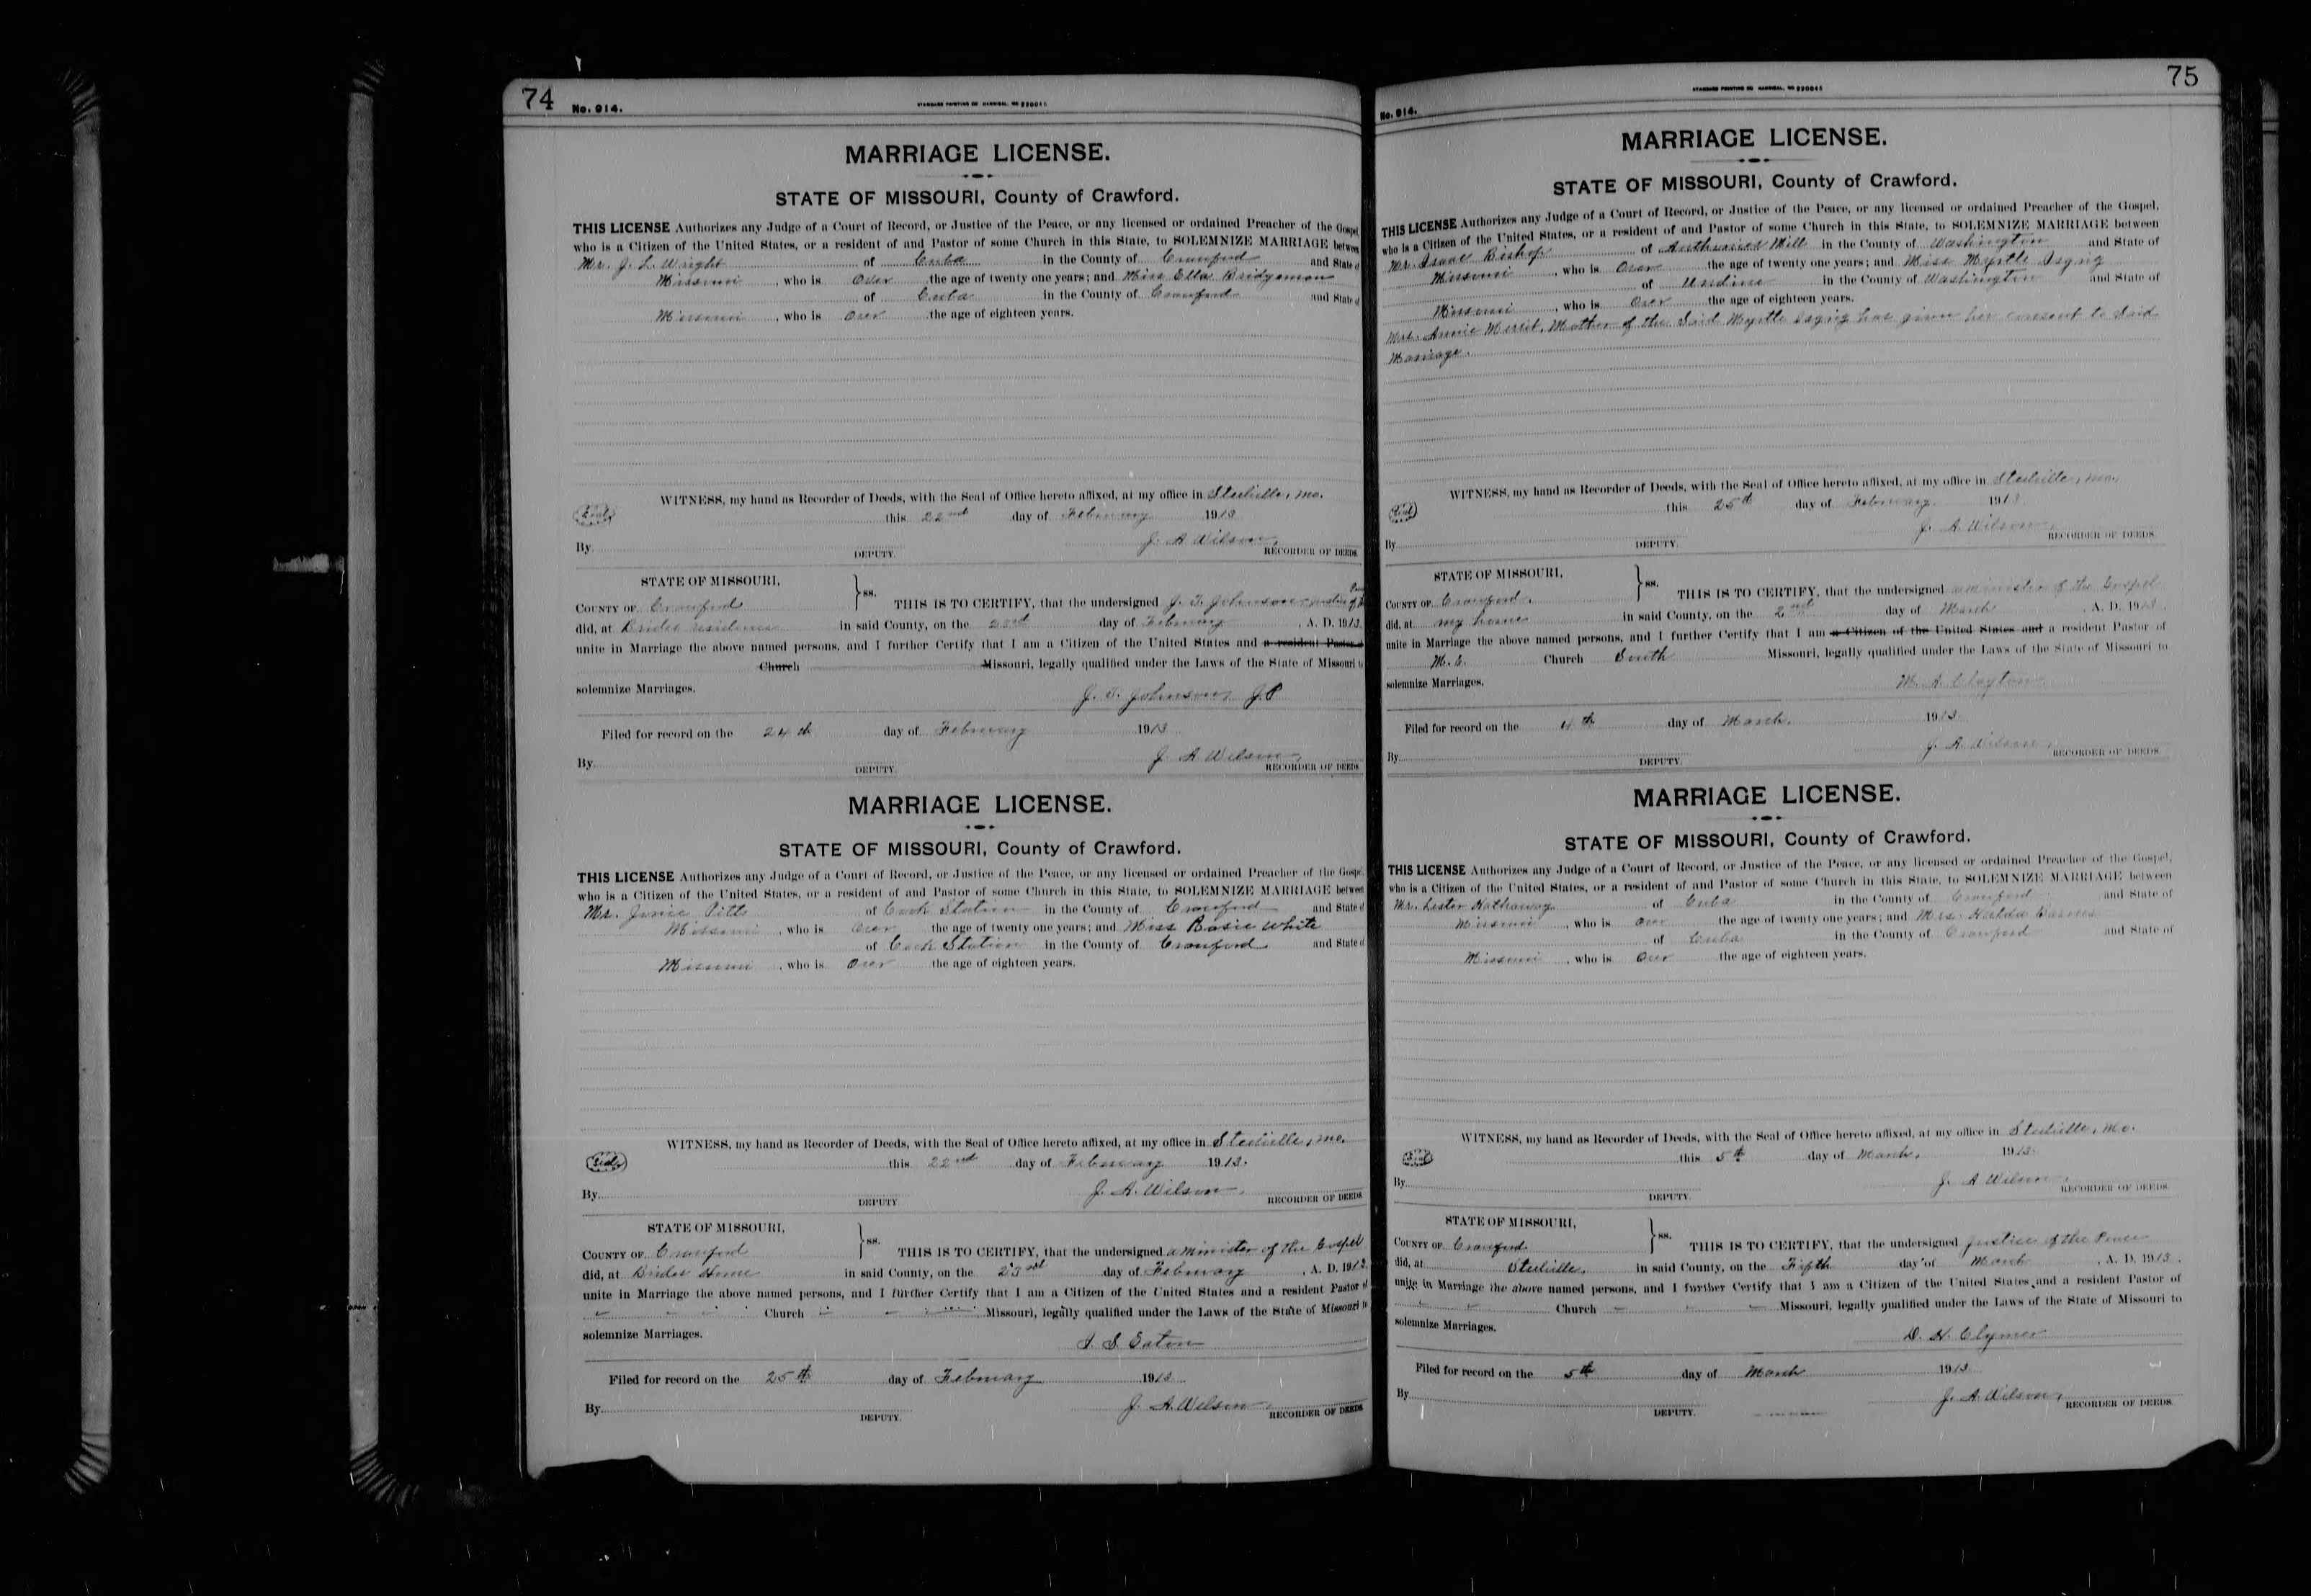 74 No. 914. STANDARD PRINTING CO HANNIBAL, MO
MARRIAGE LICENSE.
STATE OF MISSOURI, County of Crawford.
THIS LICENSE Authorizes any Judge of a Court of Record, or Justice of the Peace, or any licensed or ordained Preacher of the Gospel,
who is a Citizen of the United States, or a resident of and Pastor of some Church in this State, to SOLEMNIZE MARRIAGE between
Mr. J. L. Wright of Cuba in the County of Crawford and State of
Missouri, who is Over the age of twenty one years; and Miss Ella Bridgeman
of Cuba in the County of Crawford and State of
Missouri, who is Over the age of eighteen years.
WITNESS, my hand as Recorder of Deeds, with the Seal of Office hereto affixed, at my office in Steelville, Mo.
Seal this 22nd day of February 1913
J. A. Wilson,
By DEPUTY. RECORDER OF DEEDS.
STATE OF MISSOURI,
COUNTY OF Crawford ss. THIS IS TO CERTIFY, that the undersigned J. T. Johnson justice of the Peace
did, at Brides residence in said County, on the day of February, A. D. 1913.
unite in Marriage the above named persons, and I further Certify that I am a Citizen of the United States and a resident Pastor of
Church Missouri, legally qualified under the Laws of the State of Missouri to
solemnize Marriages. J. T. Johnson, J.P
Filed for record on the 24th day of February 1913
J. A. Wilson,
By DEPUTY. RECORDER OF DEEDS.
MARRIAGE LICENSE.
STATE OF MISSOURI, County of Crawford.
THIS LICENSE Authorizes any Judge of a Court of Record, or Justice of the Peace, or any licensed or ordained Preacher of the Gospel,
who is a Citizen of the United States, or a resident of and Pastor of some Church in this State, to SOLEMNIZE MARRIAGE between
Mr. Pitts of Cook Station in the County of Crawford and State of
Missouri, who is Over the age of twenty one years; and Miss Rosie White
of Cook Station in the County of Crawford and State of
Missouri, who is Over the age of eighteen years.
WITNESS, my hand as Recorder of Deeds, with the Seal of Office hereto affixed, at my office in Steelville, Mo.
Seal this 22nd day of February 1913.
J. A. Wilson,
By DEPUTY. RECORDER OF DEEDS.
STATE OF MISSOURI,
COUNTY OF Crawford ss. THIS IS TO CERTIFY, that the undersigned a minister of the Gospel
did, at Brides Home in said County, on the 23rd day of February, A. D. 1913
unite in Marriage the above named persons, and I further Certify that I am a Citizen of the United States and a resident Pastor of
Church Missouri, legally qualified under the Laws of the State of Missouri to
solemnize Marriages. S. Eaton
Filed for record on the 25th day of February 1913
J. A. Wilson,
By DEPUTY. RECORDER OF DEEDS.
No. 914. STANDARD PRINTING CO HANNIBAL, MO 75
MARRIAGE LICENSE.
STATE OF MISSOURI, County of Crawford.
THIS LICENSE Authorizes any Judge of a Court of Record, or Justice of the Peace, or any licensed or ordained Preacher of the Gospel,
who is a Citizen of the United States, or a resident of and Pastor of some Church in this State, to SOLEMNIZE MARRIAGE between
Mr. Isaac Bishop of Mill in the County of Washington and State of
Missouri, who is Over the age of twenty one years; and Miss Myrtle
of Undine in the County of Washington and State of
Missouri, who is Over the age of eighteen years.
Mrs. Annie Merrit, Mother of the Said Myrtle has given her consent to Said
Marriage.
WITNESS, my hand as Recorder of Deeds, with the Seal of Office hereto affixed, at my office in Steelville, Mo.
Seal this 25th day of February 1913
J. A. Wilson,
By DEPUTY. RECORDER OF DEEDS
STATE OF MISSOURI,
COUNTY OF Crawford. ss. THIS IS TO CERTIFY, that the undersigned a minister of the Gospel
did, at my home in said County, on the 2nd day of March, A. D. 1913.
unite in Marriage the above named persons, and I further Certify that I am a Citizen of the United States and a resident Pastor of
M. E. Church South Missouri, legally qualified under the Laws of the State of Missouri to
solemnize Marriages. M. A. Clayton
Filed for record on the 4th day of March. 1913
J. A. Wilson,
By DEPUTY. RECORDER OF DEEDS
MARRIAGE LICENSE.
STATE OF MISSOURI, County of Crawford.
THIS LICENSE Authorizes any Judge of a Court of Record, or Justice of the Peace, or any licensed or ordained Preacher of the Gospel,
who is a Citizen of the United States, or a resident of and Pastor of some Church in this State, to SOLEMNIZE MARRIAGE between
Mr. Lester Hathaway of Cuba in the County of Crawford and State of
Missouri, who is over the age of twenty one years; and Mrs. Hulda Barnes
of Cuba in the County of Crawford and State of
Missouri, who is Over the age of eighteen years.
WITNESS, my hand as Recorder of Deeds, with the Seal of Office hereto affixed, at my office in Steelville, Mo.
Seal this 5th day of March. 1913.
J. A. Wilson,
By DEPUTY. RECORDER OF DEEDS
STATE OF MISSOURI,
COUNTY OF Crawford ss. THIS IS TO CERTIFY, that the undersigned Justice of the Peace
did, at Steelville, in said County, on the Fifth day of March, A. D. 1913.
unite in Marriage the above named persons, and I further Certify that I am a Citizen of the United States and a resident Pastor of
Church Missouri, legally qualified under the Laws of the State of Missouri to
solemnize Marriages. D. H. Clymer
Filed for record on the 5th day of March 1913
J. A. Wilson,
By DEPUTY. RECORDER OF DEEDS